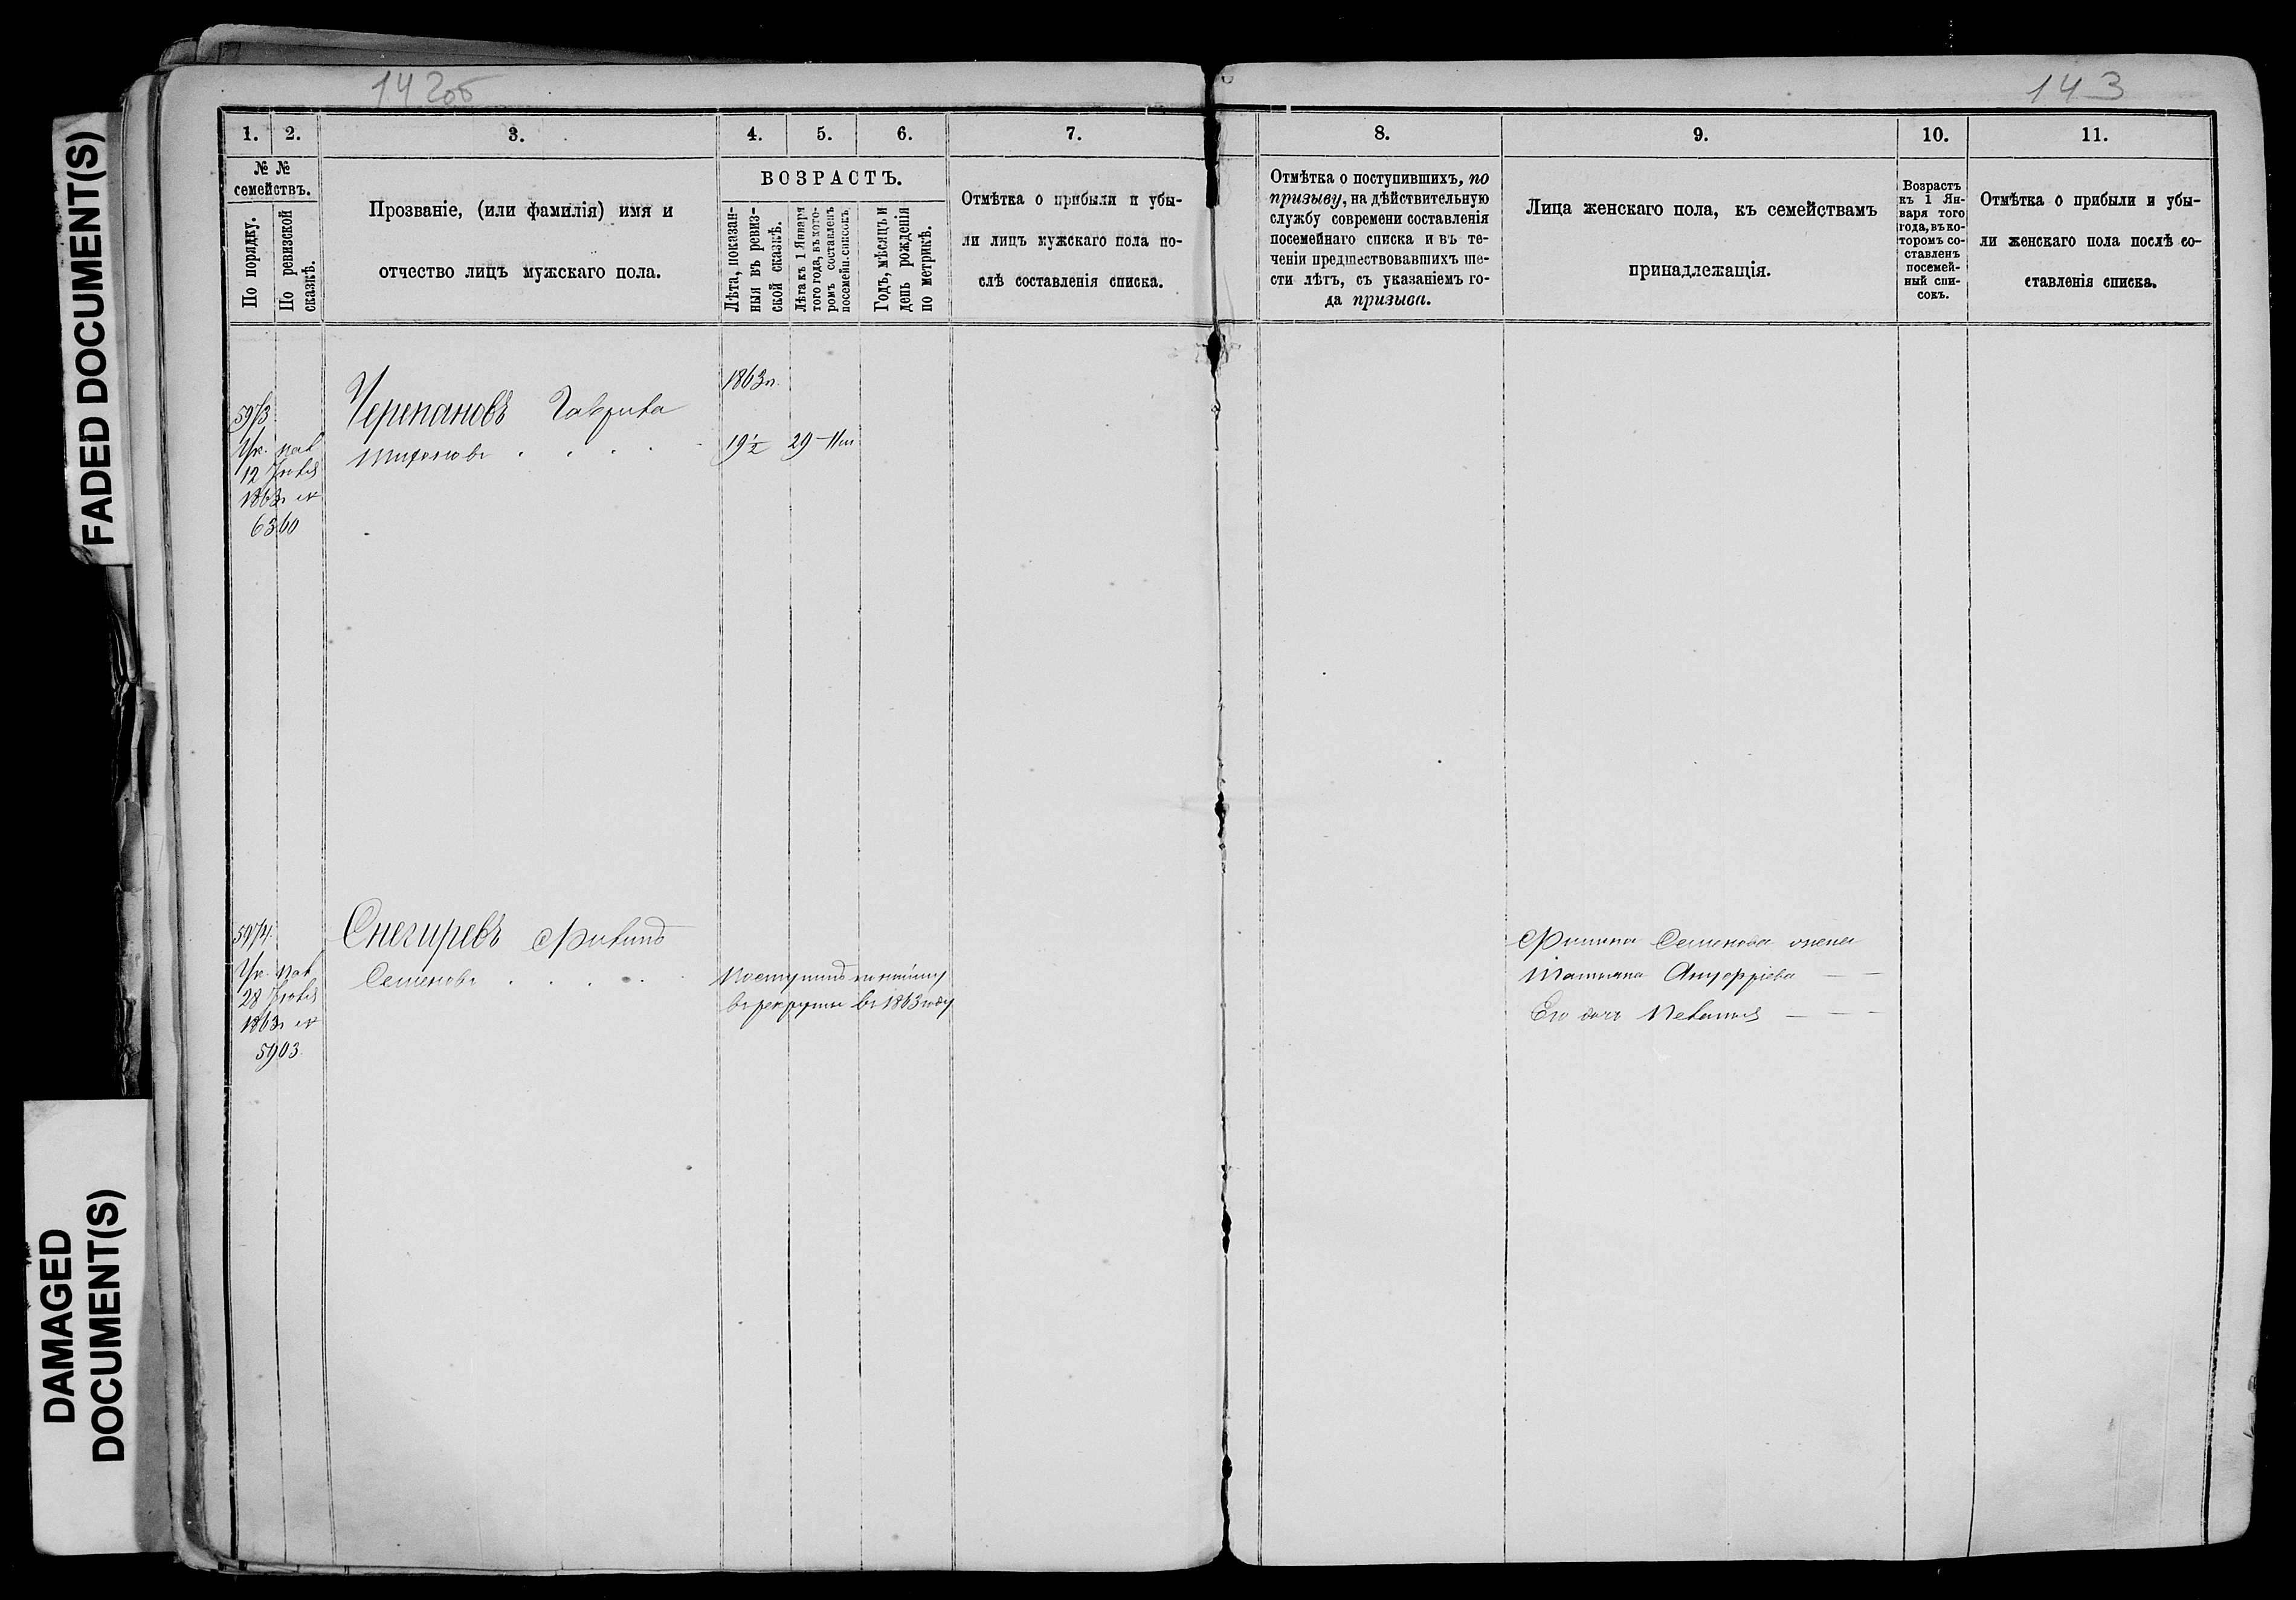 142об
143
FADED DOCUMENT(S)
DAMAGED
DOCUMENT(S)
1. 2. 3. 4. 5. 6. 7.
№ №
семействъ.
По порядку.
По ревизской
сказкѣ.
Прозваніе, (или фамилія) имя и
отчество лицъ мужскаго пола.
ВОЗРАСТЪ.
Лѣта, показан-
ныя въ ревиз-
ской сказкѣ.
Лѣта къ 1 Января
того года, въ кото-
ромъ составленъ
посемейн. списокъ.
Годъ, мѣсяцъ и
день рожденія
по метрикѣ.
Отмѣтка о прибыли и убы-
ли лицъ мужскаго пола по-
слѣ составленія списка.
8. 9. 10. 11.
Отмѣтка о поступившихъ, по
призыву, на дѣйствительную
службу современи составленія
посемейнаго списка и въ те-
ченіи предшествовавшихъ ше-
сти лѣтъ, съ указаніемъ го-
да призыва.
Лица женскаго пола, къ семействамъ
принадлежащія.
Возрастъ
къ 1 Ян-
варя того
года, въ ко-
торомъ со-
ставленъ
посемей-
ный спи-
сокъ.
Отмѣтка о прибыли и убы-
ли женскаго пола послѣ со-
ставленія списка.
1863г.
597/3 Черепановъ Гаврила
Ук. пал. 19½ 29
12 Іюля
1863г №
6360
597/4. Снегиревъ Филипъ
Ук. пал. Семеновъ
28 Іюля
1863г №
5903
Поступилъ
въ рекруты въ 1863 году
Филипа Семенова жена
Татьяна
Его дочь Пелагія